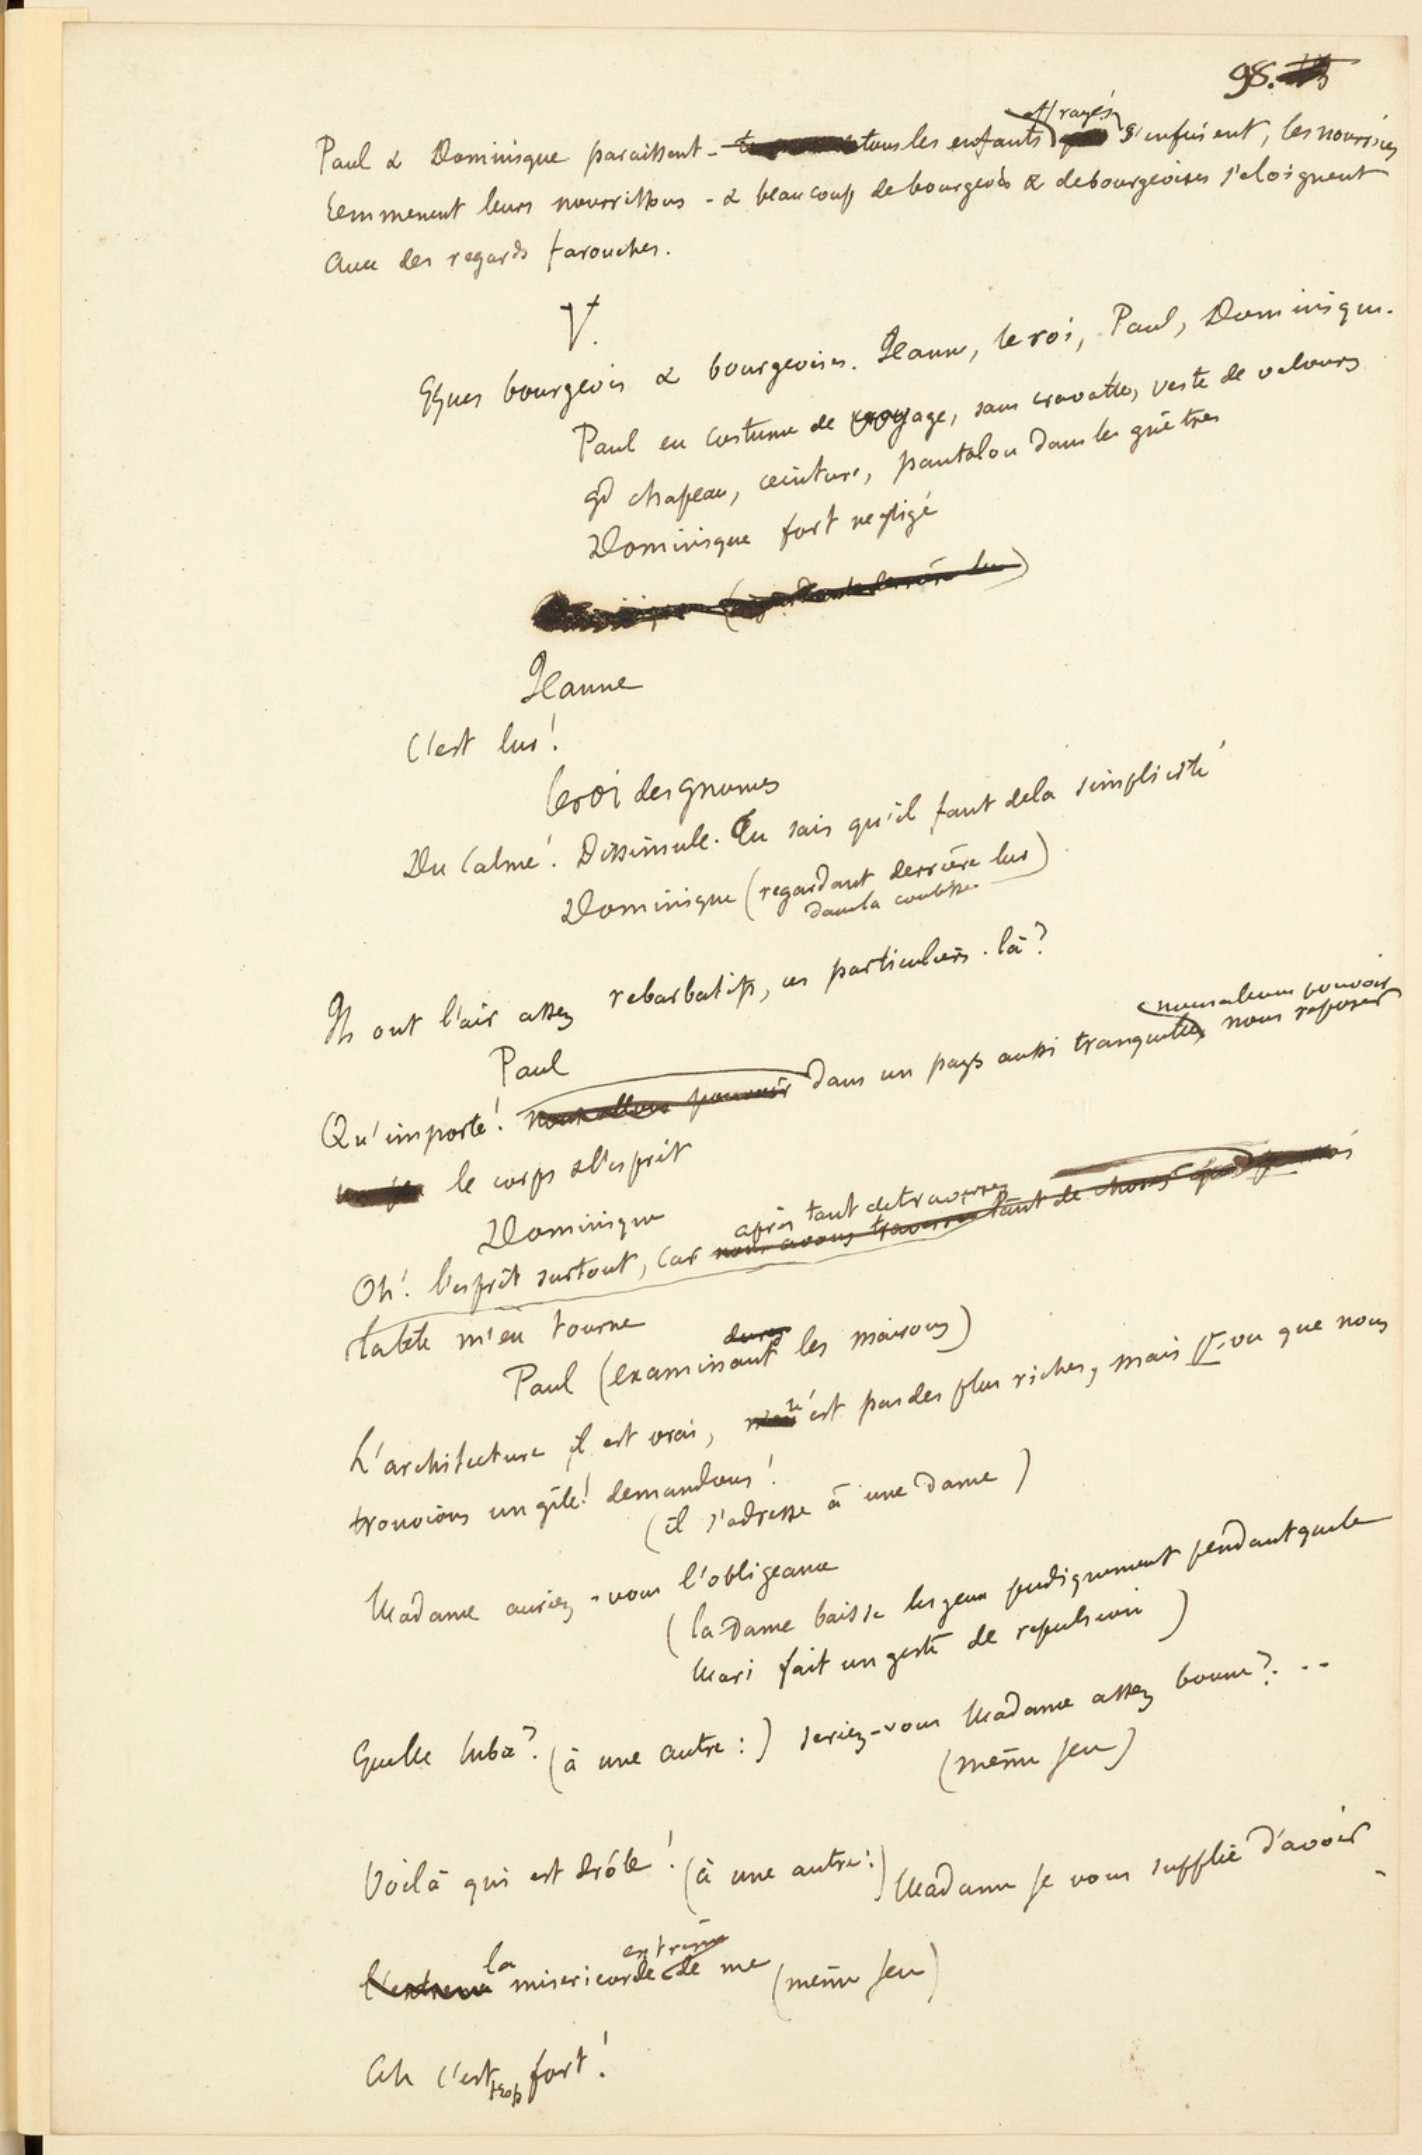 98.
effrayés
Paul & Dominique paraissent - tous les enfants s'enfuient, les nourrices
emmenent leurs nourrissons - & beaucoup de bourgeois & de bourgeoises s'eloignent
avec des regards farouches.
V.
Qques bourgeois & bourgeoises. Jeanne, le roi, Paul, Dominique.
Paul en costume de voyage, sans cravatte, veste de velours
gd chapeau, ceinture, pantalon dans les guêtres
Dominique fort negligé
Jeanne
C'est lui!
le roi des gnomes
Du Calme! Dissimule. Tu sais qu'il faut de la simplicité
Dominique (regardant derrière lui)
dans la coulisse
Ils ont l'air assez rebarbatifs, ces particuliers-là?
Paul
nous allons pouvoir
Qu'importe! nous allons pouvoir dans un pays aussi tranquille, nous reposer
un peu le corps & l'esprit
Dominique
après tant de traverses
Oh! l'esprit surtout, car nous avons traversé tant de choses que
la tête m'en tourne
Paul (examinant les maisons)
L'architecture il est vrai, n'est pas des plus riches, mais pr. vu que nous
trouvions un gîte! demandons!
(il s'adresse à une Dame)
Madame auriez-vous l'obligeance
(la Dame baisse les yeux pudiquement pendant que le
Mari fait un geste de repulsion)
Quelle lubie? (à une autre:) seriez-vous Madame assez bonne? ...
(même jeu)
Voilà qui est drôle! (à une autre:) Madame je vous supplie d'avoir
la extrême
l'extreme misericorde de me (même jeu)
Ah c'est trop fort!